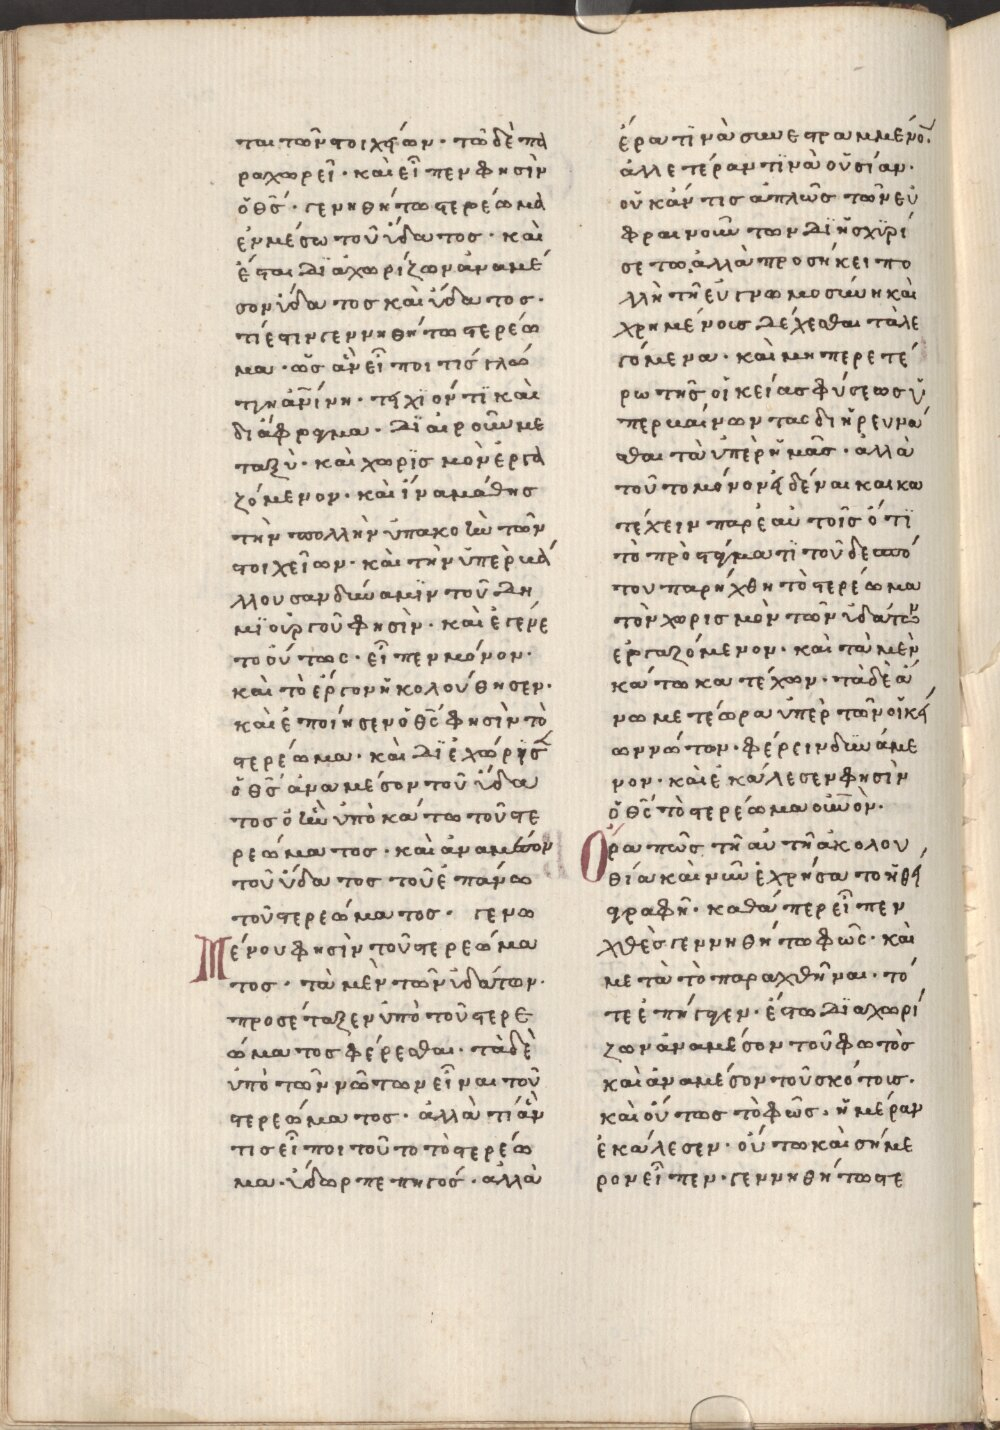 ται τῶν στοιχείων· τῶ δὲ πα
ραχωρεῖ· καὶ εἶπεν φησὶν
ὁ θς· γενηθήτω στερέωμα
ἐν μέσω τοῦ ὕδατος· καὶ
ἔσται διαχωρίζων ἀναμέ
σον ὕδατος καὶ ὕδατος·
τί ἐστιν γεννηθήτω στερέω
μα· ὡς ἂν εἴποι τίς γλώ
ττη ἀνίνη· τείχιόν τι καὶ
διάφραγμα· διαιροῦν με
ταξὺ· καὶ χωρισμὸν ἐργα
ζόμενον· καὶ ἵνα μάθης
τὴν πολλὴν ὑπακοὴν τῶν
στοιχείων· καὶ τὴν ὑπερβάλ
λουσαν δύναμιν τοῦ δη
μιουργοῦ φησὶν· καὶ ἐγένε
το οὕτως· εἶπεν μόνον·
καὶ τὸ ἔργον ἠκολούθησεν·
καὶ ἐποίησεν ὁ θς φησὶν τὸ
στερέωμα· καὶ διεχώρισεν
ὁ θς ἀναμέσον τοῦ ὕδα
τος ὁ ἦν ὑποκάτω τοῦ στε
ρεώματος· καὶ ἀναμέσον
τοῦ ὕδατος τοῦ ἐπάνω
τοῦ στερεώματος· γενο
μένου φησὶν τοῦ στερεώμα
τος· τὰ μὲν τῶν ὑδάτων·
προσέταξεν ὑπὸ τοῦ στερε
ώματος φέρεσθαι· τὰ δὲ
ὑπὸ τῶν νώτων εἶναι τοῦ
στερεώματος· ἀλλὰ τί ἂν
τις εἴποι τοῦτο τὸ στερέω
μα· ὕδωρ πεπηγός· ἀλλὰ
ἀέρα τινὰ συνεστραμμένον·
ἀλλ' ἑτέραν τινὰ οὐσίαν·
οὐκ ἄν τις ἁπλῶς τῶν εὐ
φραινούντων διησχυρί
σετω, ἀλλὰ προσήκει πο
λλῆ τῆ εὐγνωμοσύνη καὶ
χρημένοις δέχεσθαι τὰ λε
γόμενα· καὶ μη περετέ
ρω τῆς οἰκείας φύσεως ὑ
περβαίνωντας διηρευνᾶ
σθαι τὰ ὑπὲρ ἡμᾶς· ἀλλὰ
τοῦτο μόνον εἰδέναι και κα
τέχειν παρ' ἑαυτοῖς ὅτι
τὸ πρόσταγματι τοῦ δεσπό
του παρήχθη τὸ στερέωμα
τὸν χορισμὸν τῶν ὑδάτων
ἐργαζόμενον· καὶ τὰ μὲν
κάτω κατέχων· τὰ δὲ ἄ
νω μετέωρα ὑπὲρ τῶν οἰκεί
ων νώτων· φέρειν δυνάμε
νον· καὶ ἐκάλεσεν φησὶν
ὁ θς τὸ στερέωμα οὐνὸν·
Ὅρα πῶς τῆ αὐτῆ ἀκολου
θία καὶ νῦν ἐχρήσατο ἡ θεία
γραφὴ· καθάπερ εἶπεν
χθὲς γεννηθήτω φῶς· καὶ
μετὰ τὸ παραχθῆναι· τό
τε ἐπήγαγεν· ἔστω διαχωρί
ζων ἀναμέσον τοῦ φωτὸς
καὶ ἀναμέσον τοῦ σκότους·
καὶ οὕτως τὸ φῶς· ἡμέραν
ἐκάλεσεν· οὕτω καὶ σήμε
ρον εἶπεν· γεννηθήτω στε